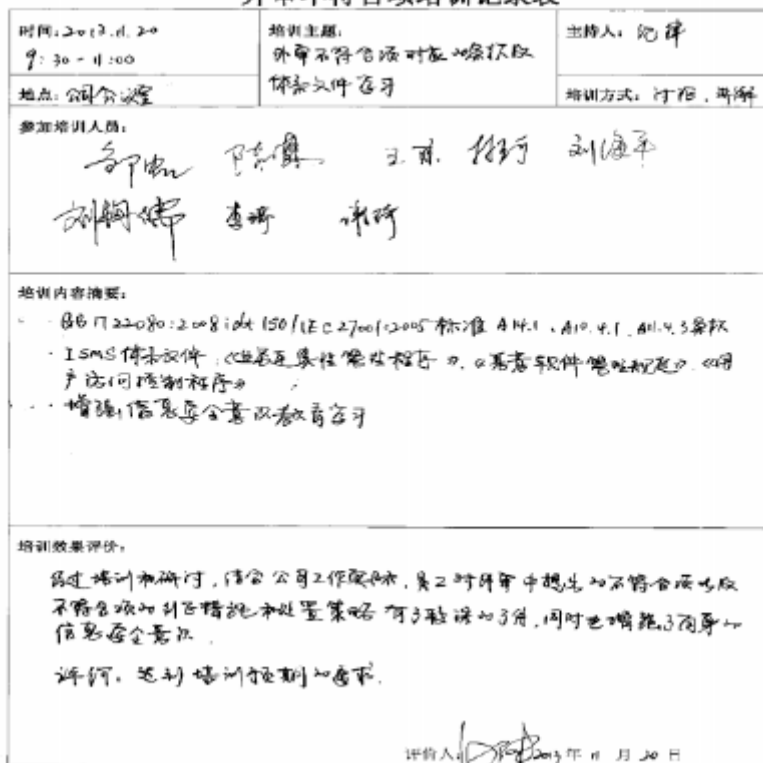 外审不符合项培训记录表
时间:2013.11.20
9:30-11:00
培训主题:
外审不符合项对应的条款及
体系文件学习
主持人:
地点:公司会议室
培训方式:讨论、讲解
参加培训人员:
刘海平
李琦
培训内容摘要:
GB/T22080:2008 idt ISO/IEC27001:2005标准 A14.1、A10.4.1、A11.4.3条款
· ISMS体系文件:《业务连续性管理程序》、《恶意软件管理规定》、《用
户访问控制程序》
· 增强信息安全意识教育学习
培训效果评价:
经过培训和研讨,结合公司工作实际,员工对外审中提出的不符合项以及
不符合项的纠正措施和处置策略有了较深的了解,同时也增强了自身的
信息安全意识.
评价:达到培训预期的要求.
评价人: 2013年11月20日